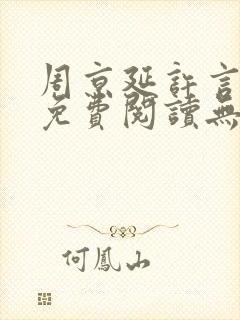 周京延許言
免費閱讀無
何鳳山